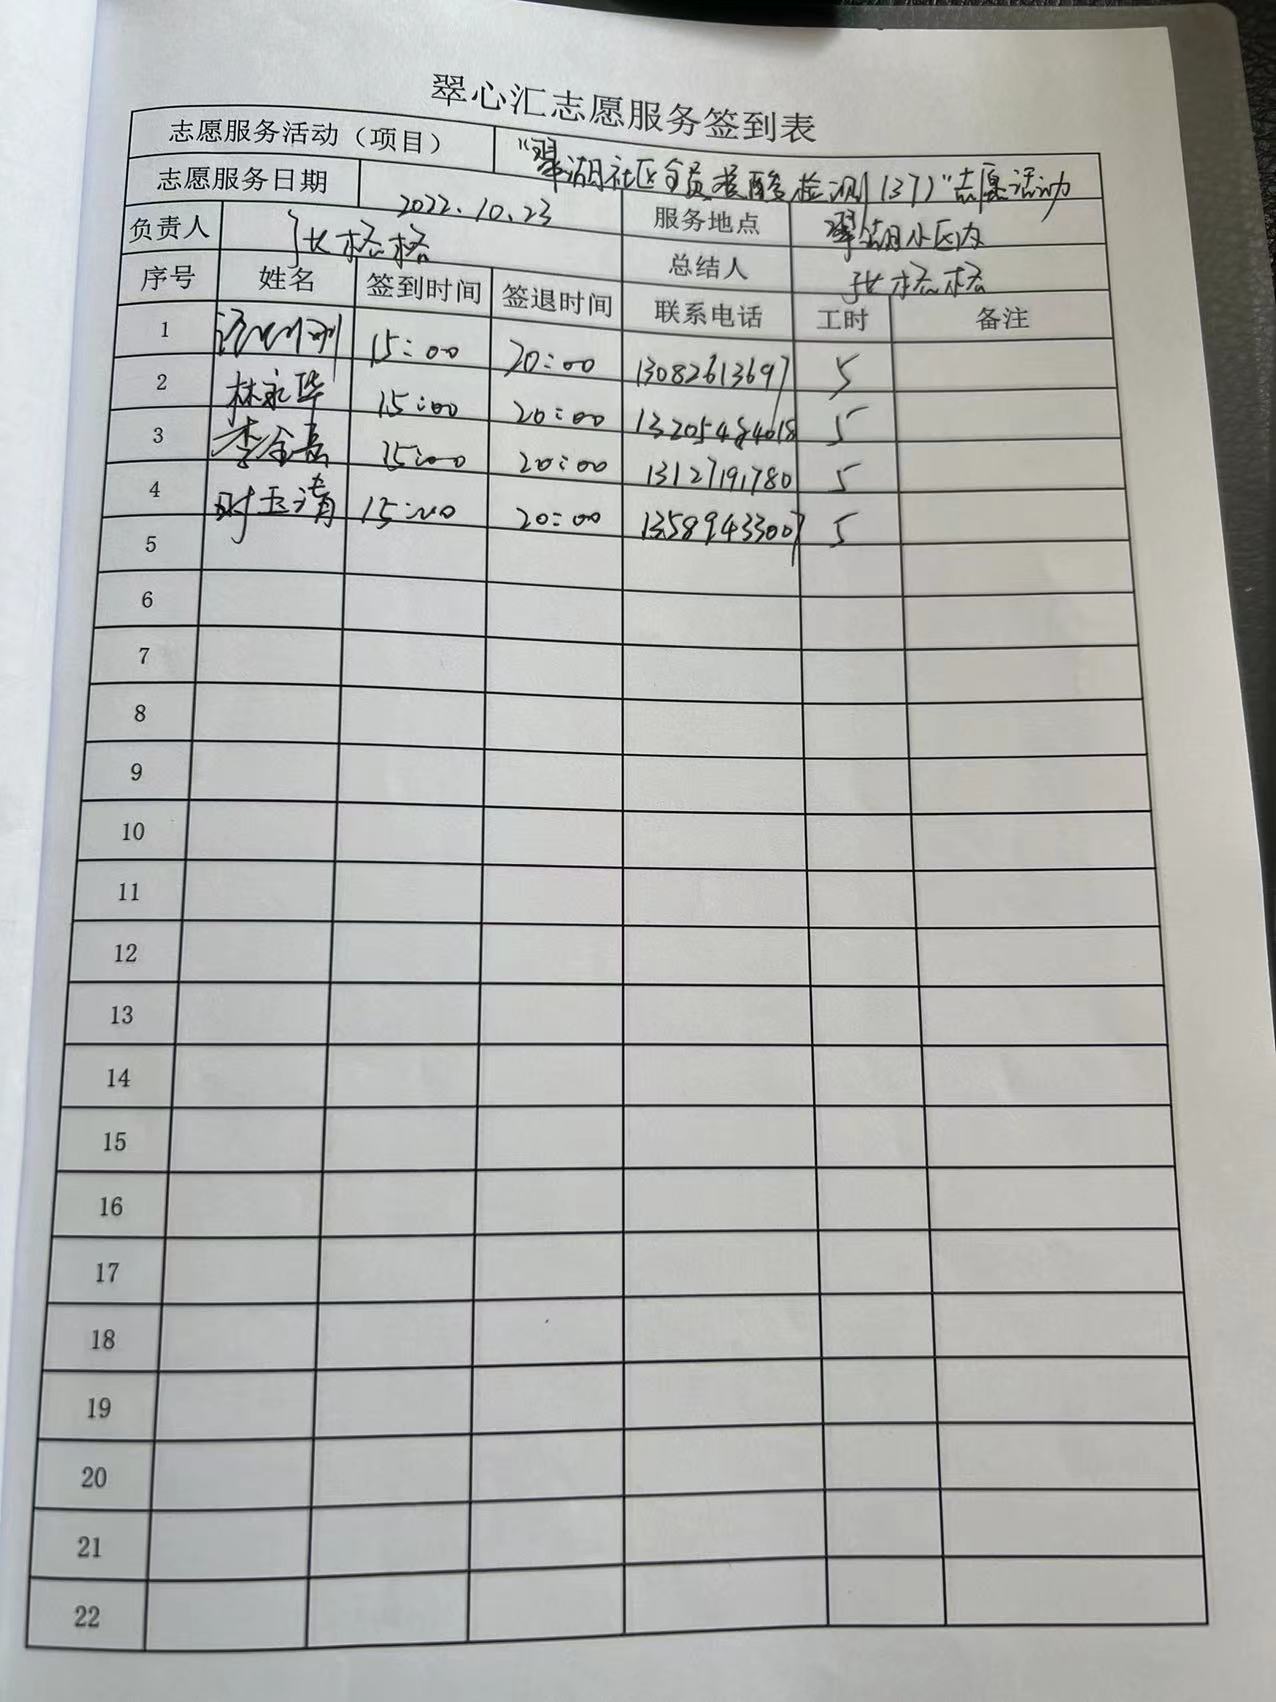 翠心汇志愿服务签到表
志愿服务活动（项目） “翠湖社区全员核酸检测(37)”志愿活动
志愿服务日期 2022.10.23 服务地点 翠湖小区内
负责人 张格格 总结人 张格格
序号 姓名 签到时间 签退时间 联系电话 工时 备注
1 15:00 20:00 13082613697 5
2 林永华 15:00 20:00 13205484618 5
3 李金磊 15:00 20:00 13127191780 5
4 时玉清 15:00 20:00 13589433007 5
5
6
7
8
9
10
11
12
13
14
15
16
17
18
19
20
21
22